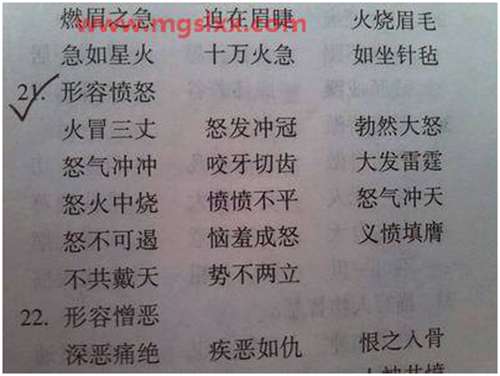 燃眉之急 迫在眉睫 火烧眉毛
www.mgslxx.com
急如星火 十万火急 如坐针毡
21. 形容愤怒
火冒三丈 怒发冲冠 勃然大怒
怒气冲冲 咬牙切齿 大发雷霆
怒火中烧 愤愤不平 怒气冲天
怒不可遏 恼羞成怒 义愤填膺
不共戴天 势不两立
22. 形容憎恶
深恶痛绝 疾恶如仇 恨之入骨